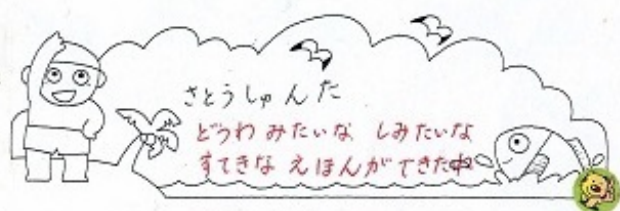 さとうしゅんた
どうわ みたいな しみたいな
すてきな えほんが できた